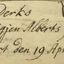 Derks
gjen Alberts
t den 19 Apr